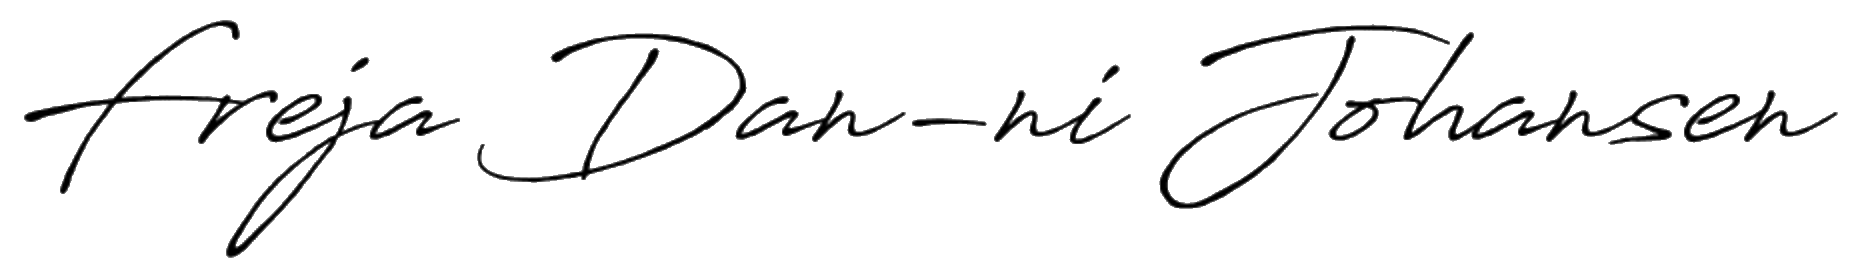 Freja Dan-ni Johansen